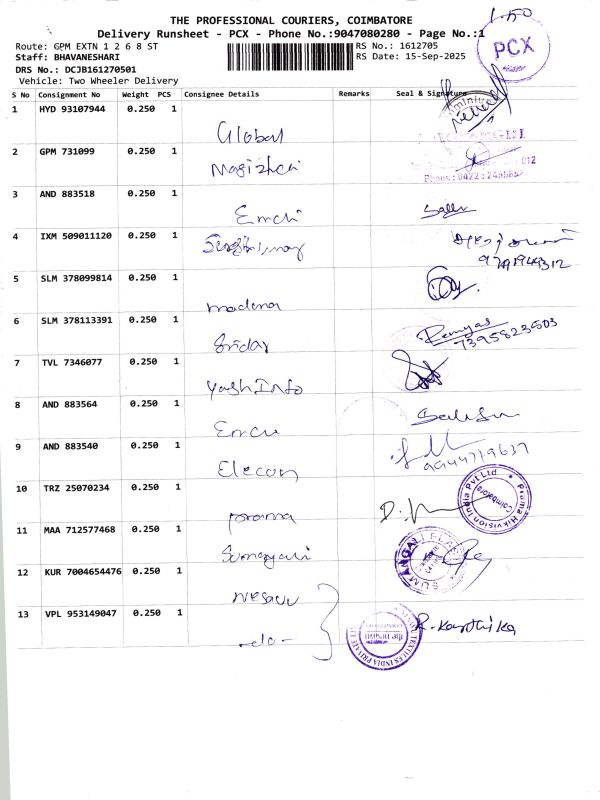 THE PROFESSIONAL COURIERS, COIMBATORE
Delivery Runsheet - PCX - Phone No.:9047080280 - Page No.:1
1.50
PCX
Route: GPM EXTN 1 2 6 8 ST
RS No.: 1612705
Staff: BHAVANESHARI
RS Date: 15-Sep-2025
DRS No.: DCJB161270501
Vehicle: Two Wheeler Delivery
S No Consignment No Weight PCS Consignee Details Remarks Seal & Signature
1 HYD 93107944 0.250 1
Global
2 GPM 731099 0.250 1
012
Phone : 0422 :
3 AND 883518 0.250 1
4 IXM 509011120 0.250 1
9791949312
5 SLM 378099814 0.250 1
madona
6 SLM 378113391 0.250 1
Sridar
Remyas
7395823503
7 TVL 7346077 0.250 1
Yash Info
8 AND 883564 0.250 1
9 AND 883540 0.250 1
Elecon
9944719637
10 TRZ 25070234 0.250 1
prama
Prama Hikvision India Pvt Ltd
Coimbatore
11 MAA 712577468 0.250 1
SUMANGALI
12 KUR 7004654476 0.250 1
13 VPL 953149047 0.250 1
-do-
TEXTILES INDIA PRIVATE
R. Karthika